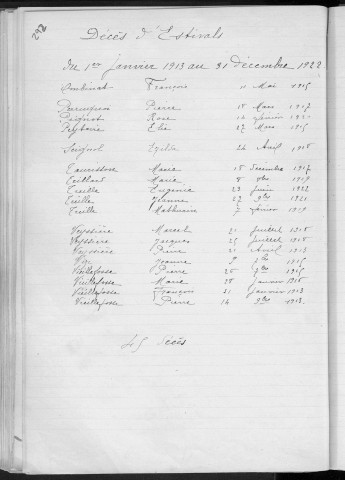 292
Décès d'Estivals
du 1er janvier 1913 au 31 décembre 1922
François 11 Mai 1915
Pierre 18 Mars 1917
Rose 14 janvier 1921
Peyborie Elie 27 Mars 1915
Soignol 24 Avril 1918
Marie 15 décembre 1917
Marie 8 1919
Treille Eugénie 23 juin 1922
Treille Jeanne 27 9bre 1921
Treille Mathurine 7 février 1919
Veyssière Marcel 21 juillet 1918
Veyssière Jacques 25 juillet 1918
Veyssière Pierre 21 Avril 1918
Jeanne 1915
Vieillefosse Pierre 20 1915
Vieillefosse Marie 28 janvier 1918
Vieillefosse François 21 janvier 1913
Vieillefosse Pierre 14 9bre 1913
45 décès